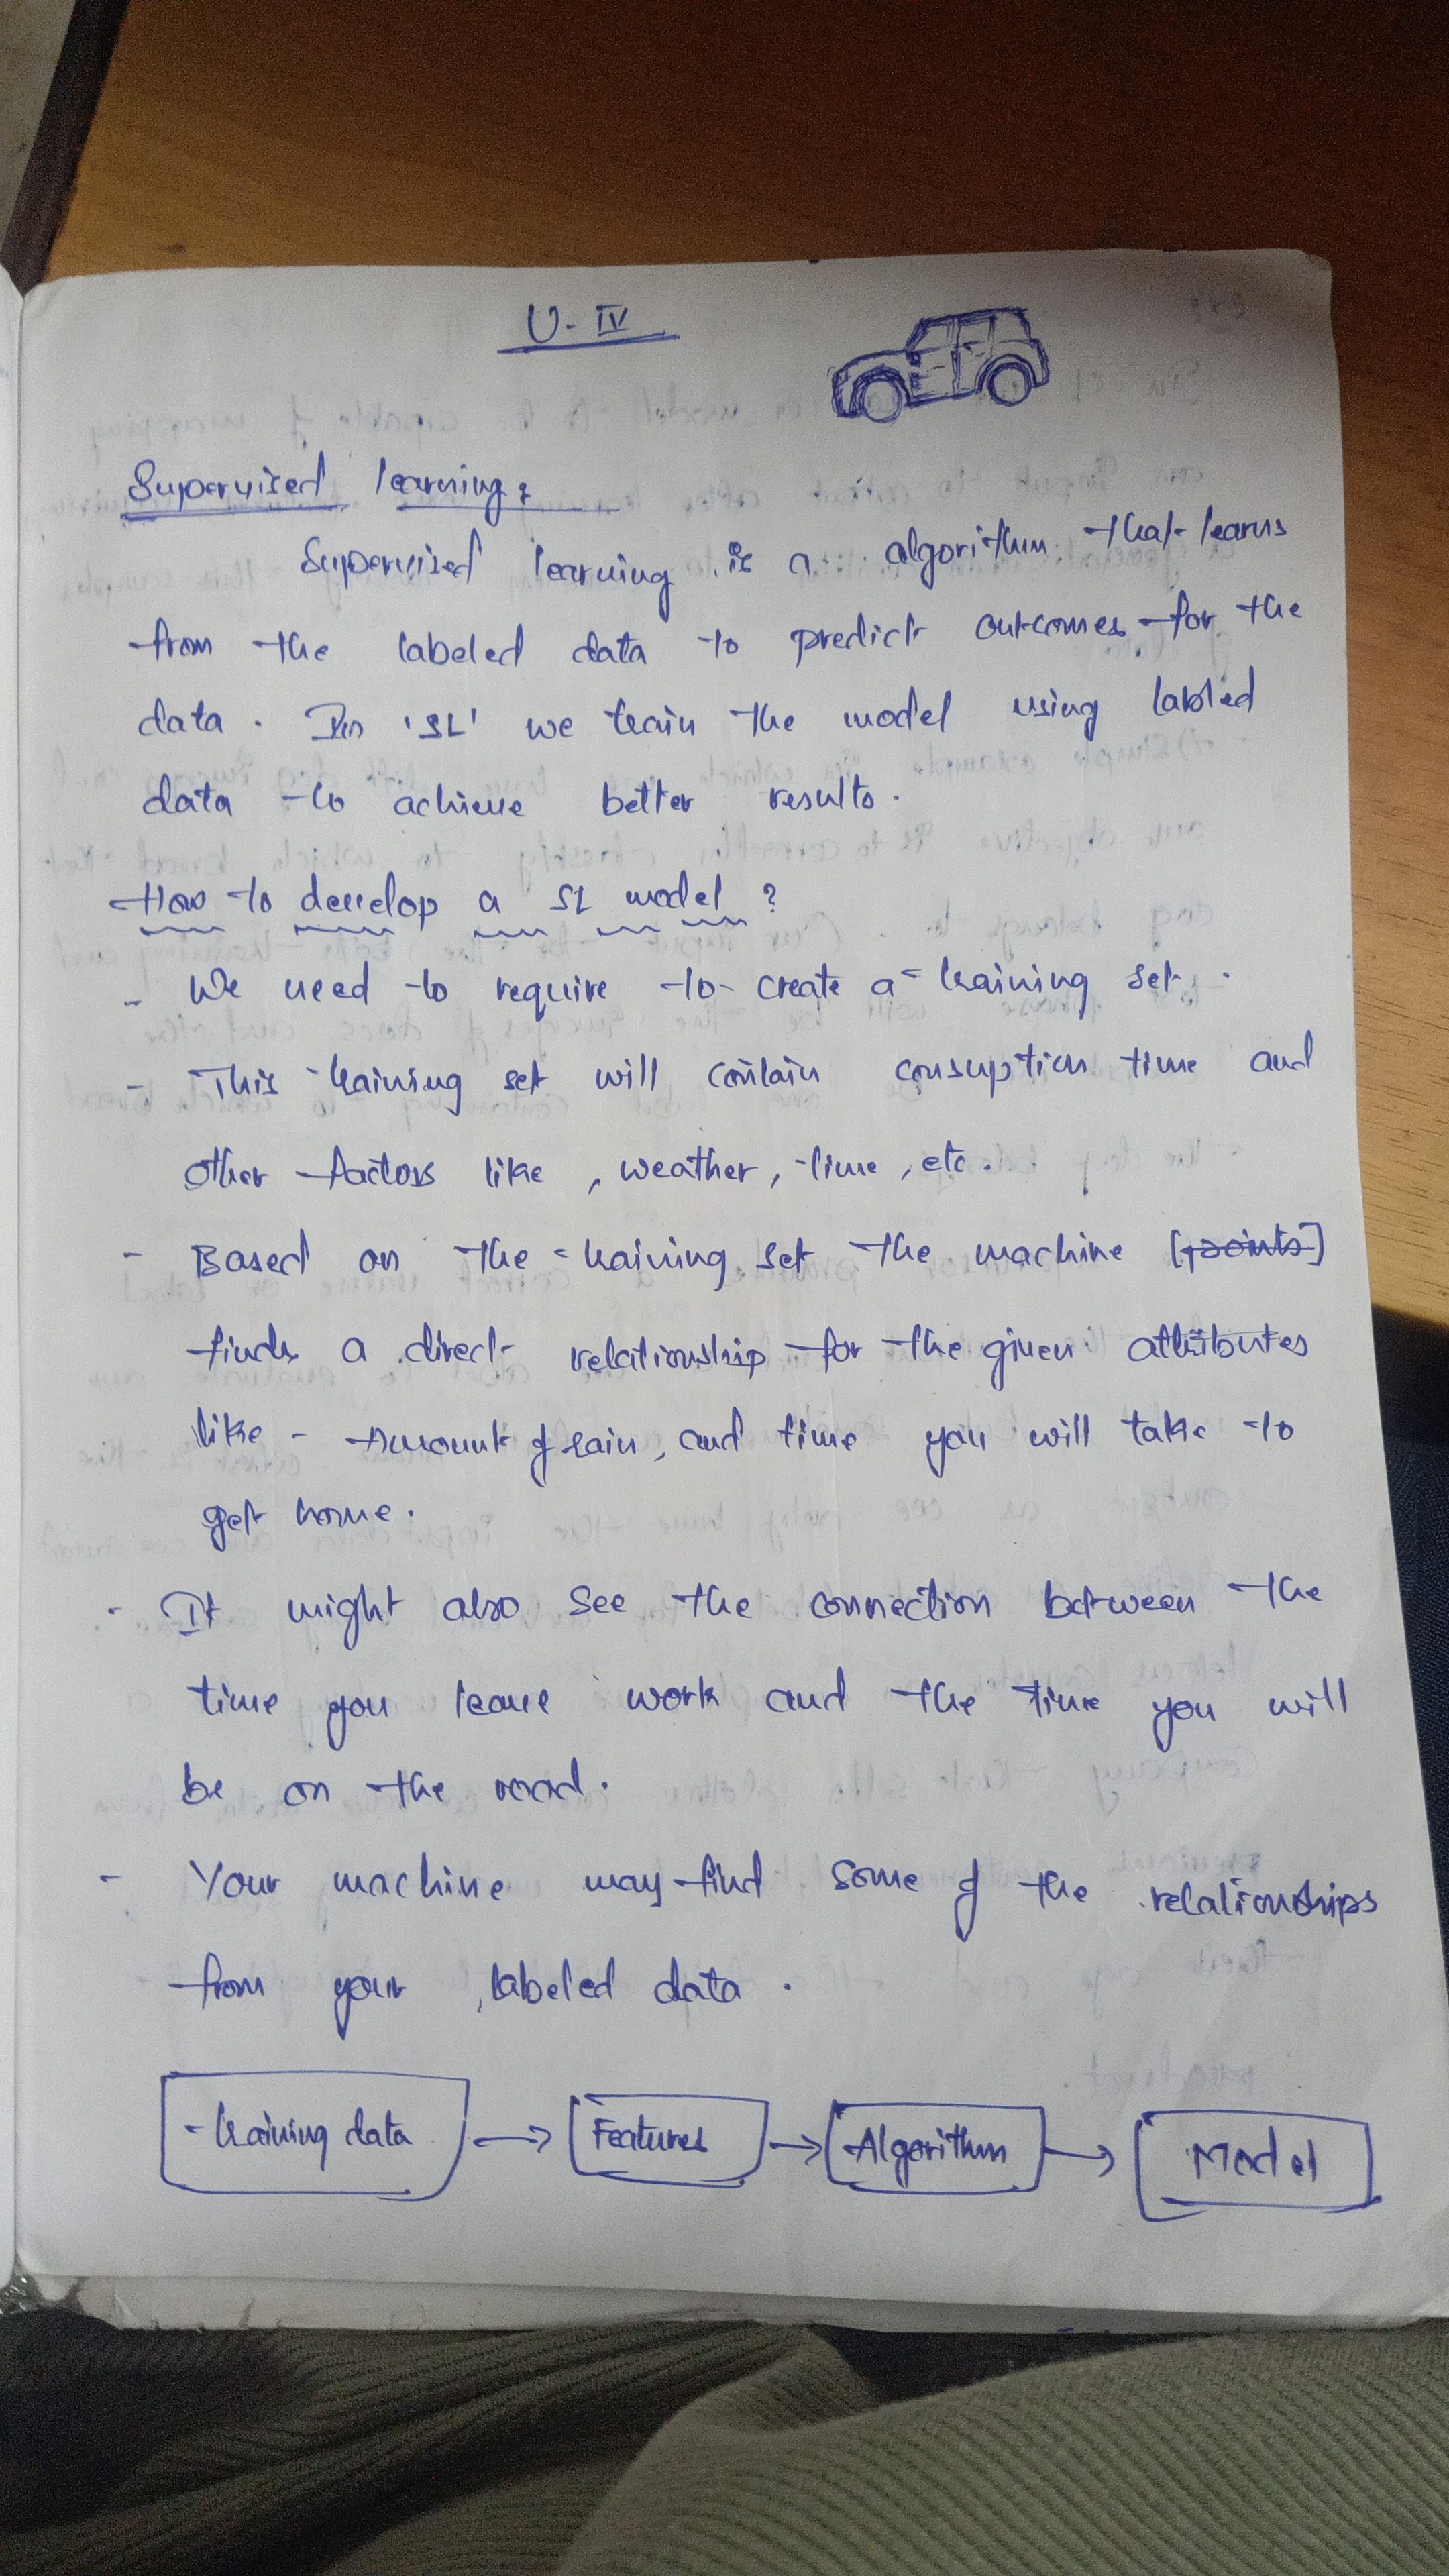 U- IV
Supervised learning:
Supervised learning is a algorithm that learns
from the labeled data to predict outcomes for the
data. In 'SL' we train the model using labled
data to achieve better results.
How to develop a SL model ?
- We need to require to create a training set.
- This training set will contain consuption time and
other factors like , weather, time, etc.
- Based on the training set the machine [points]
finds a direct relationship for the given attributes
like - Amount of rain, and time you will take to
get home.
- It might also see the connection between the
time you leave work and the time you will
be on the road.
- Your machine may find some of the relationships
from your labeled data.
training data → Features → Algorithm → Model